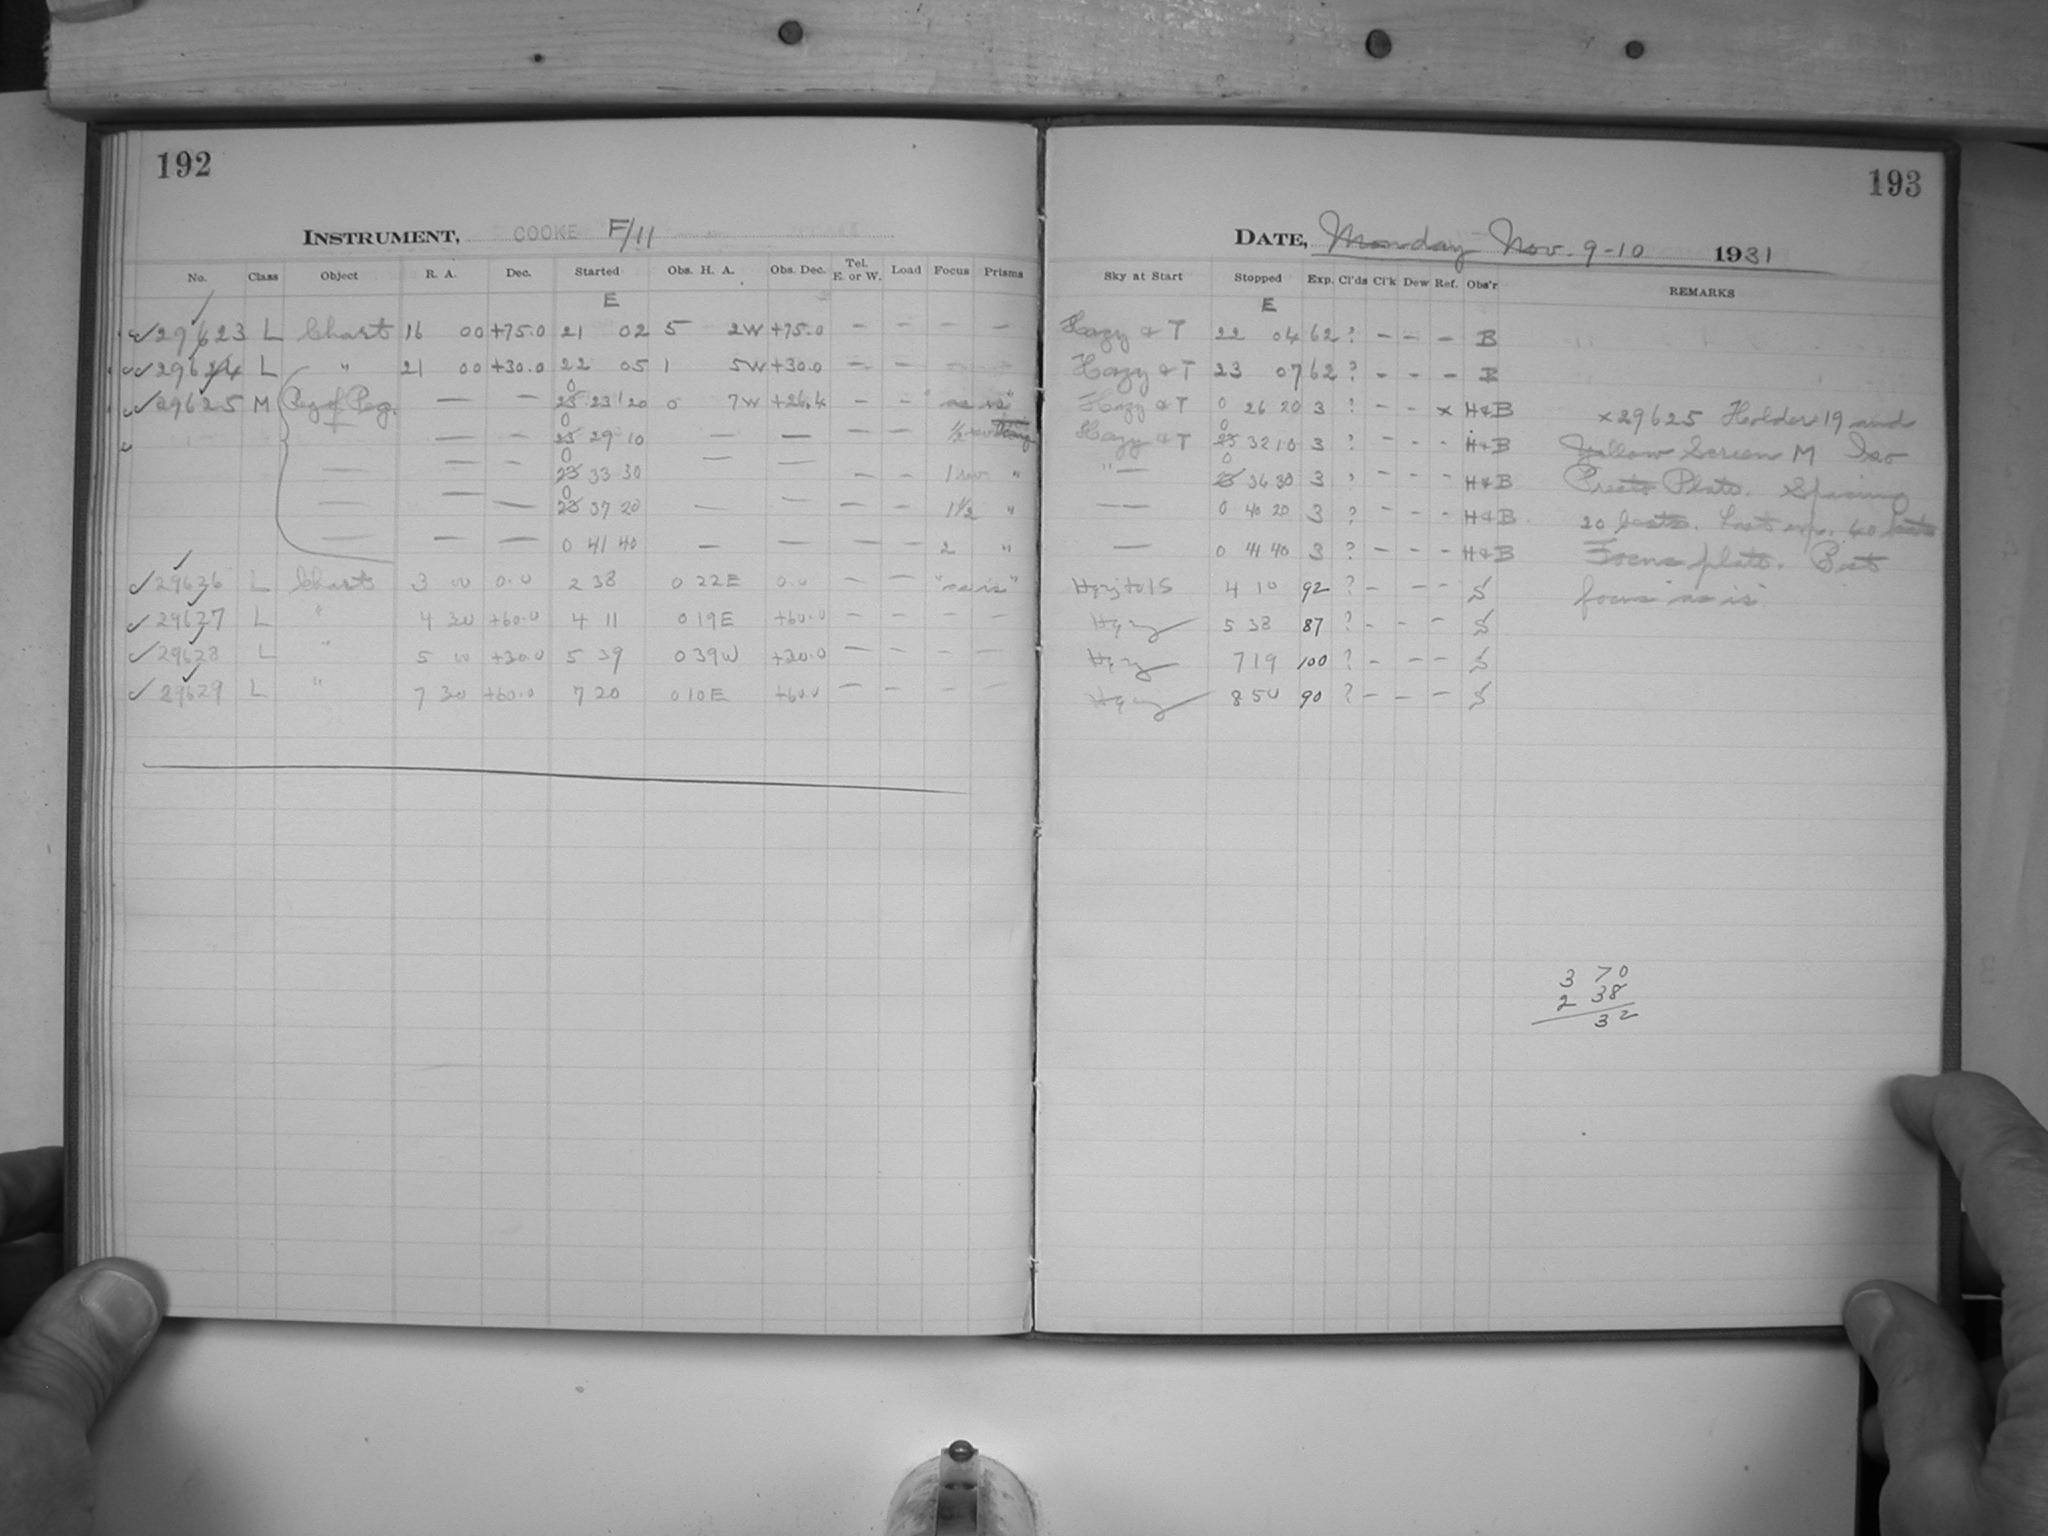 192
INSTRUMENT, COOKE F/11
No. Class Object R. A. Dec. Started Obs. H. A. Obs. Dec. Tel. E. or W. Load Focus Prisms
E
✓29623 L Chart 16 00 +75.0 21 02 5 2W +75.0 — — — —
✓29624 L " 21 00 +30.0 22 05 1 5W +30.0 — — — —
✓29625 M Peg of Peg. — — 0 23 23 20 0 7W +26.4 — — "as is"
— — 0 23 29 10 — — — — 1/2
— — — 0 23 33 30 — — — — 1 rev "
— — — 0 23 37 20 — — — — 1 1/2 "
— — — 0 41 40 — — — — 2 "
✓29636 L Charts 3 00 0.0 2 38 0 22E 0.0 — — "as is"
✓29627 L " 4 30 +60.0 4 11 0 19E +60.0 — — — —
✓29628 L " 5 00 +30.0 5 39 0 39W +30.0 — — — —
✓29629 L " 7 30 +60.0 7 20 0 10E +60.0 — — — —
193
DATE, Monday Nov. 9-10 1931
Sky at Start Stopped Exp. Cl'ds Cl'k Dew Ref. Obs'r REMARKS
E
Hazy & T 22 04 62 ? — — — B
Hazy & T 23 07 62 ? — — — B
Hazy & T 0 26 20 3 ? — — x H&B x29625 Holder 19 and
Hazy & T 0 23 32 10 3 ? — — — H&B Yellow Screen M Iso
"— 0 23 36 30 3 ? — — — H&B Presto Plate. Spacing
—— 0 40 20 3 ? — — — H&B 20 Last exp. 40
— 0 44 40 3 ? — — — H&B Focus plate. Best
Hazy to 1S 4 10 92 ? — — — S focus "as is"
Hazy 5 38 87 ? — — — S
Hazy 7 19 100 ? — — — S
Hazy 8 50 90 ? — — — S
3 70
2 38
32